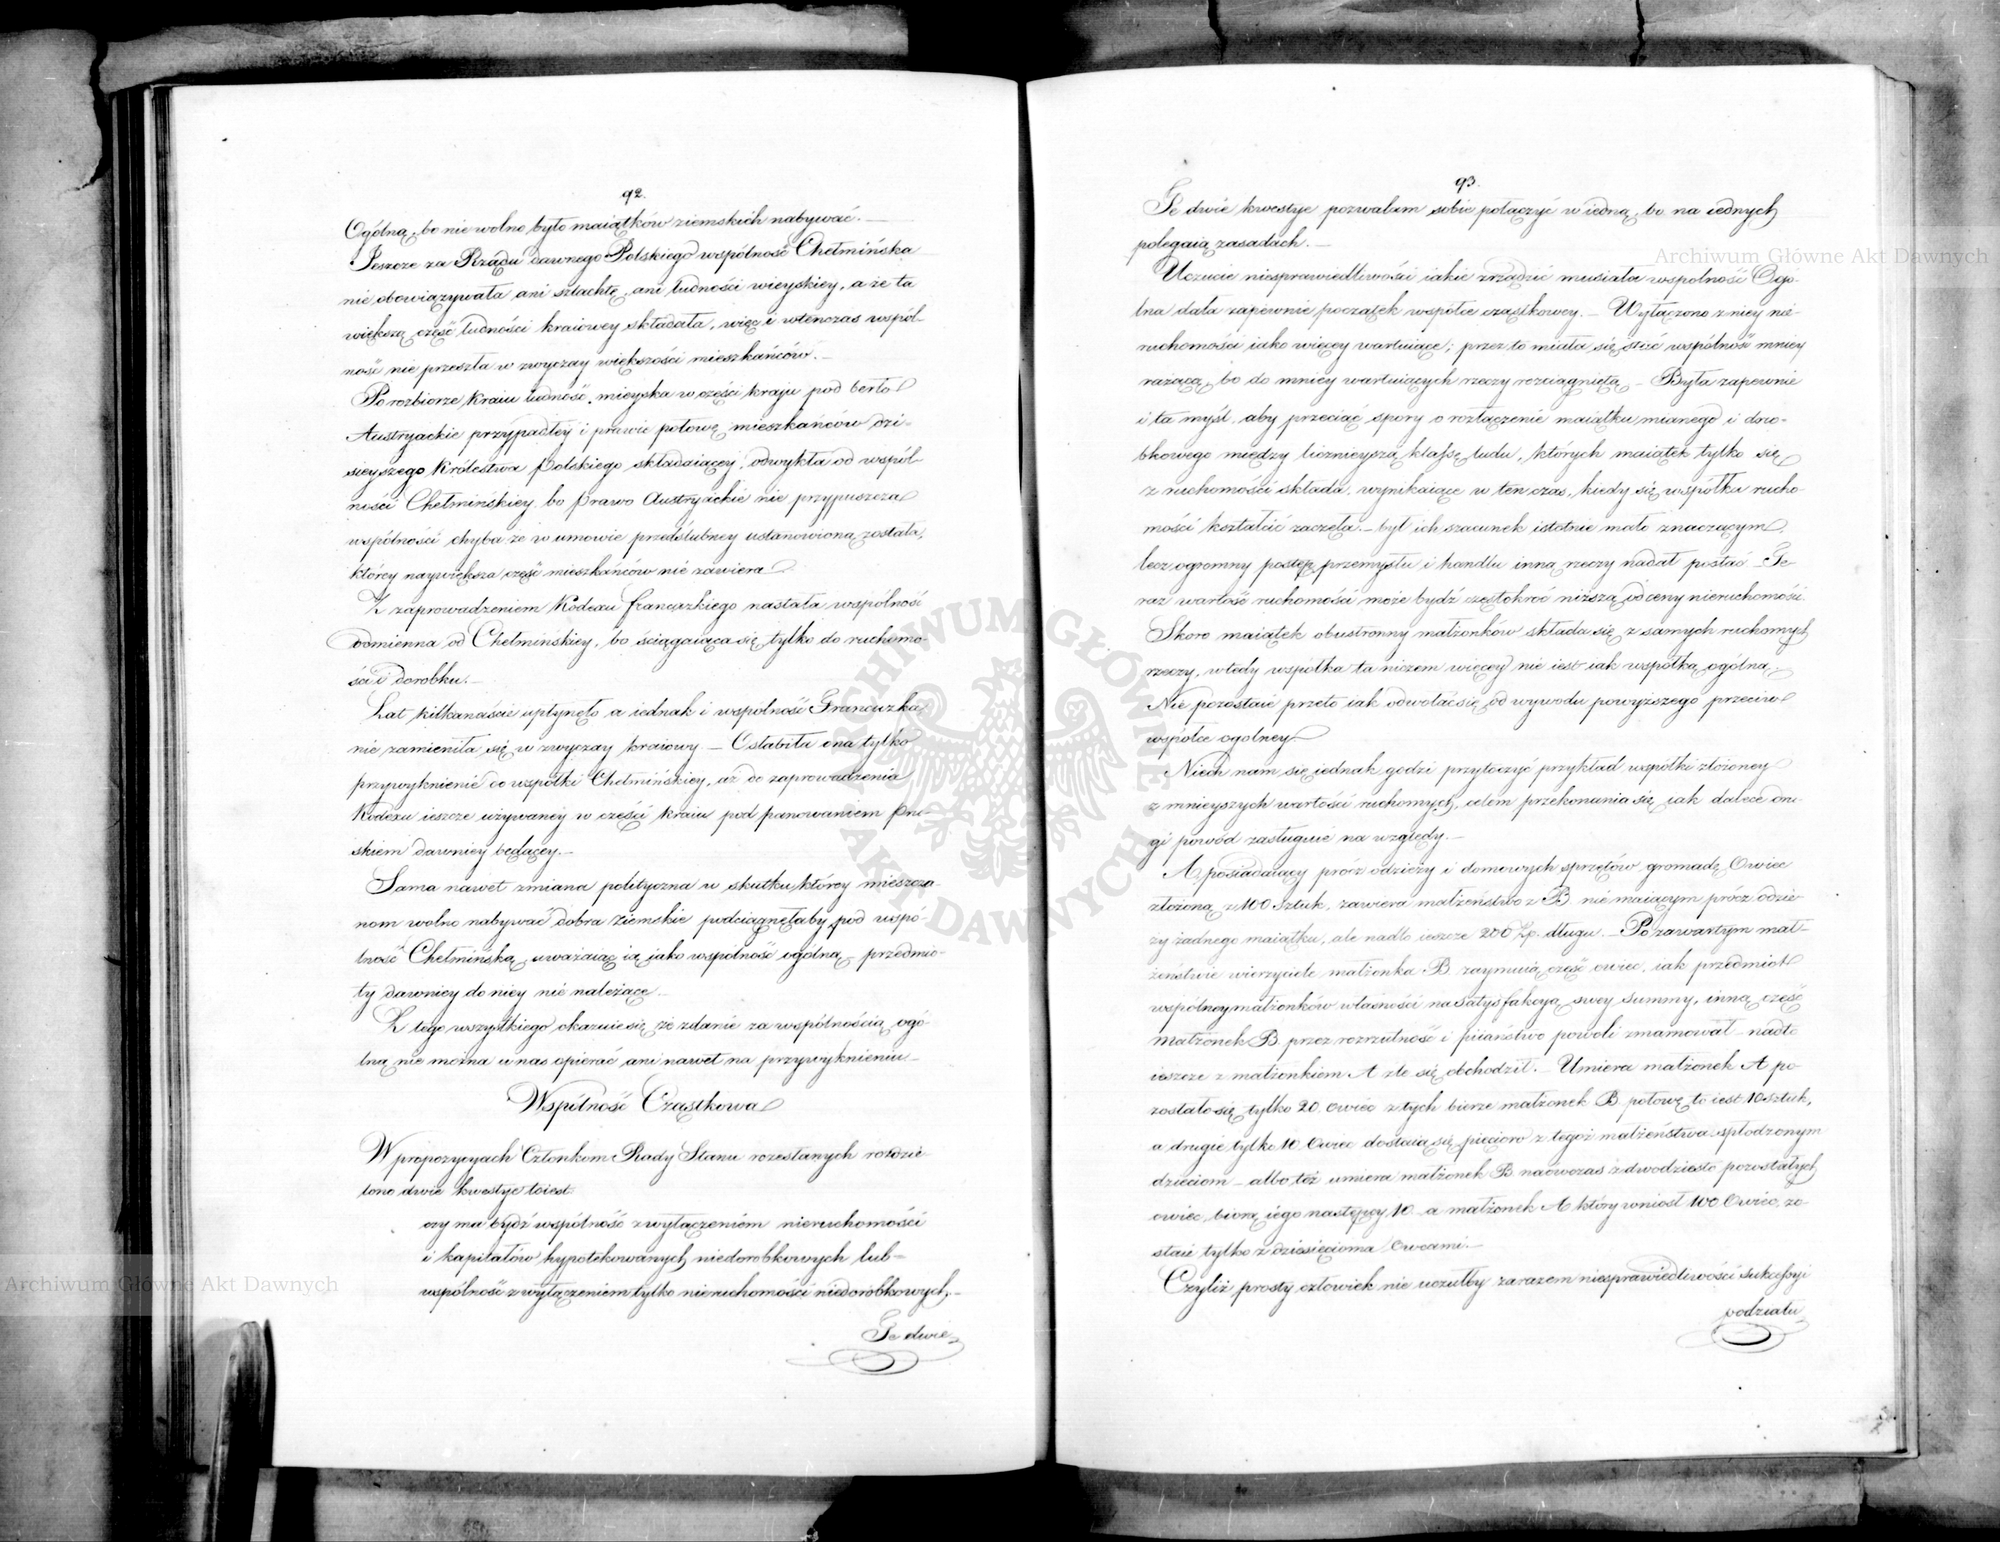 92.
Ogólną, bo nie wolno było maiątków ziemskich nabywać. —
Jeszcze za Rządu dawnego Polskiego wspólność Chełmińska
nie obowiązywała ani szlachtę, ani ludności wieyskiey, a że ta
większą część ludności kraiowey składała, więc i wtenczas wspól-
ność nie przeszła w zwyczay większości mieszkańców. —
Po rozbiorze kraiu ludność mieyska w części kraju pod berło
Austryackie przypadłey i prawie połowę mieszkańców dzi-
sieyszego Królestwa Polskiego składaiącey, odwykła od wspól-
ności Chełmińskiey, bo Prawo Austryackie nie przypuszcza
wspólności chyba że w umowie przedślubney ustanowioną została,
którey naywiększa część mieszkańców nie zawiera
Z zaprowadzeniem Kodexu francuzkiego nastała wspólność
odmienna od Chełmińskiey, bo ściągaiąca się tylko do ruchomo-
ści i dorobku. —
Lat kilkanaście upłynęło a iednak i wspólność Francuzka
nie zamieniła się w zwyczay kraiowy — Osłabiła ona tylko
przywyknienie do wspólki Chełmińskiey, aż do zaprowadzenia
Kodexu ieszcze używaney w części kraiu pod panowaniem Pru-
skiem dawniey będącey. —
Sama nawet zmiana polityczna w skutku którey mieszcza-
nom wolno nabywać dobra ziemskie podciągnęłaby pod wspó-
lność Chełmińską uważaiąc ią jako wspólność ogólną, przedmio-
ty dawniey do niey nie należące.
Z tego wszystkiego okazuie się, że zdanie za wspólnością ogó-
lną nie można u nas opierać ani nawet na przywyknieniu —
Wspólność Cząstkowa
W propozycyach Członkom Rady Stanu rozesłanych rozdzie-
lono dwie kwestye toiest
czy ma bydź wspólność z wyłączeniem nieruchomości
i kapitałów hypotekowanych niedorobkowych lub-
wspólność z wyłączeniem tylko nieruchomości niedorobkowych. —
Te dwie
93.
Te dwie kwestye pozwalam sobie połączyć w iedną, bo na iednych
polegaią zasadach. —
Uczucie niesprawiedliwości iakie zrządzić musiała wspolność Ogó-
lna dała zapewnie początek wspólce cząstkowey. — Wyłączono z niey nie-
ruchomości iako więcey wartuiące; przez to miała się stać wspólność mniey
rażącą, bo do mniey wartuiących rzeczy rozciągniętą — Była zapewnie
i ta myśl, aby przeciąć spory o rozłączenie maiątku mianego i doro-
bkowego między licznieyszą klassę ludu, których maiątek tylko się
z ruchomości składa, wynikaiące w ten czas, kiedy się wspólka rucho-
mości kształcić zaczęła. — był ich szacunek istotnie mało znaczącym
lecz ogromny postęp przemysłu i handlu inną rzeczy nadał postać Te
raz wartość ruchomości może bydź częstokroć niższą od ceny nieruchomości
Skoro maiątek obustronny małżonków składa się z samych ruchomych
rzeczy, wtedy wspólka ta niczem więcey nie iest iak wspólką ogólną.
Nie pozostaie przeto iak odwołać się od wywodu powyższego przeciw
wspólce ogolney
Niech nam się iednak godzi przytoczyć przykład wspólki złożoney
z mnieyszych wartości ruchomych, celem przekonania się iak dalece dru-
gi powód zasługuie na względy. —
A. posiadaiący prócz odzieży i domowych sprzętów gromadę Owiec
złożoną z 100 sztuk, zawiera małżeństwo z B. nie maiącym prócz odzie-
ży żadnego maiątku, ale nadto ieszcze 200 Zp. długu. — Po zawartym mał-
żeństwie wierzyciele małżonka B zaymuią część owiec, iak przedmiot
wspólney małżonków własności na satysfakcyą swey summy, inną część
małżonek B. przez rozrzutność i piiaństwo powoli zmarnował — nadto
ieszcze z małżonkiem A źle się obchodził. — Umiera małżonek A po-
zostało się tylko 20. owiec z tych bierze małżonek B. połowę to iest 10 sztuk,
a drugie tylko 10. Owiec dostaią się pięcioro z tegoż małżeństwa spłodzonym
dzieciom — albo też umiera małżonek B naówczas z dwodziestu pozostałych
owiec, biorą iego następcy 10. a małżonek A który wniosł 100 Owiec, zo-
staie tylko z dziesięcioma Owcami. —
Czyliż prosty człowiek nie uczułby zarazem niesprawiedliwości sukcessyi
podziału
Archiwum Główne Akt Dawnych
Archiwum Główne Akt Dawnych
ARCHIWUM GŁÓWNE AKT DAWNYCH